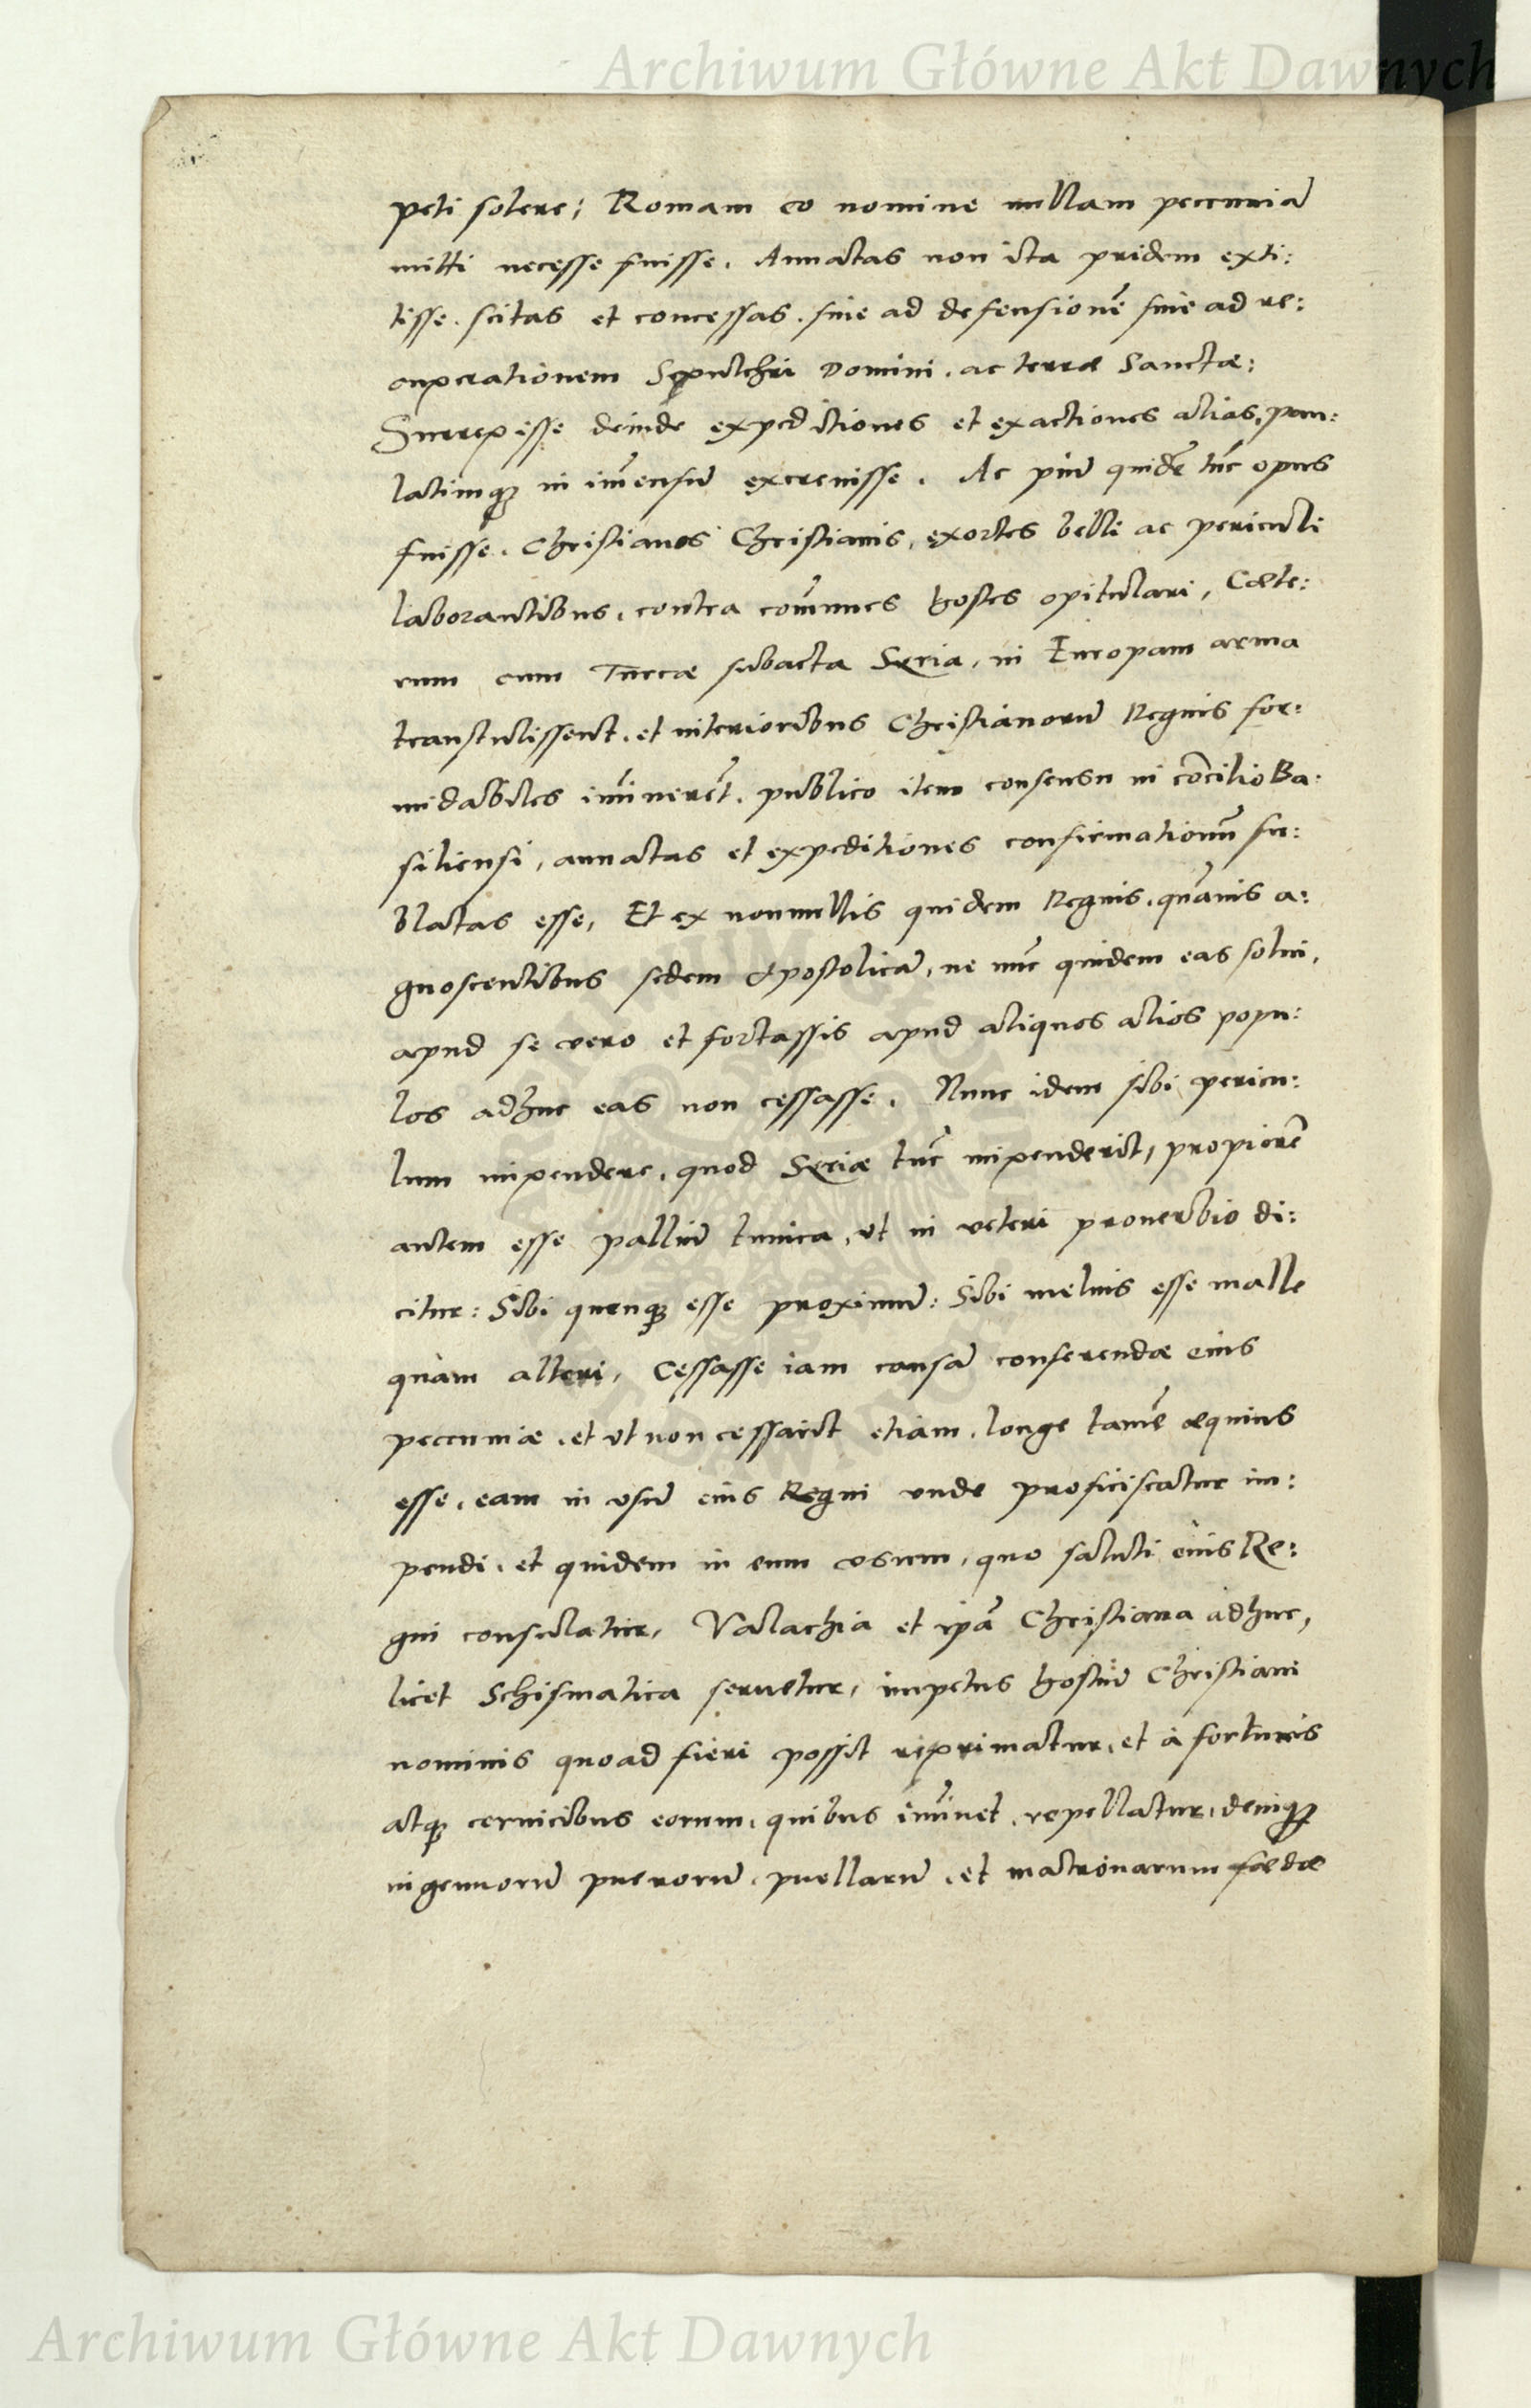 Archiwum Główne Akt Dawnych
peti solere; Romam eo nomine nullam pecuniā
mitti necesse fuisse. Annatas non ita pridem exti:
tisse. scitas et concessas. siue ad defensionē siue ad re:
cuperationem Sepulchri Domini. ac terræ Sanctæ:
Surrepsisse deinde expeditiones et exactiones alias, pau:
latimq; in im̄ensū excreuisse. Ac piū quidē tūc opus
fuisse. Christianos Christianis, exortes belli ac periculi
laborantibus, contra com̄unes hostes opitulari, Cæte:
rum cum Turcæ subacta Syria, in Europam arma
transtulissent. et interioribus Christianorū Regnis for:
midabiles im̄inerēt. publico item consensu in cōcilio Ba:
siliensi, annatas et expeditiones confirmationū su:
blatas esse, Et ex nonnullis quidem Regnis, quāuis a:
gnoscentibus sedem Apostolicā, ne nūc quidem eas solui,
apud se vero et fortassis apud aliquos alios popu:
los adhuc eas non cessasse. Nunc idem sibi pericu:
lum impendere, quod Syriæ tūc impenderit, propiorē
autem esse palliū tunica, vt in veteri prouerbio di:
citur: Sibi quenq; esse proximū: Sibi melius esse malle
quàm alteri, Cessasse iam causā conferendæ eius
pecuniæ, et vt non cessarit etiam, longe tamē æquius
esse, eam in vsū eius Regni vnde proficiscatur im:
pendi, et quidem in eum vsum, quo saluti eius Re:
gni consulatur, Valachia et ipā Christiana adhuc,
licet Schismatica seruetur, impetus hostiū Christiani
nominis quoad fieri possit reprimatur, et à fortunis
atq; ceruicibus eorum, quibus im̄inet, repellatur, deniq;
ingenuorū puerorū, puellarū, et matronarum fœdæ
Archiwum Główne Akt Dawnych